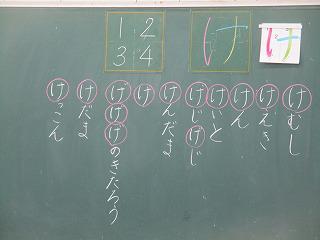 1 2
3 4
け
け
けむし
けえき
けん
けいと
げじげじ
けんだま
け
げげげのきたろう
けだま
けっこん